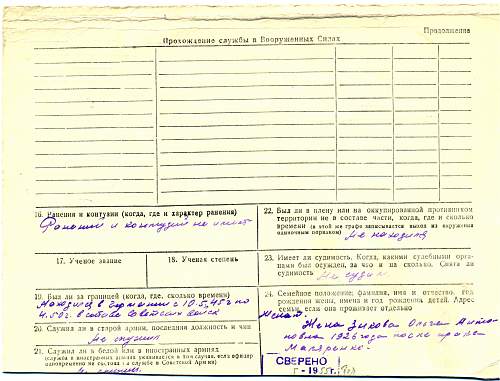 Продолжение
Прохождение службы в Вооруженных Силах
16. Ранения и контузии (когда, где и характер ранения)
Ранений и контузий не имеет
22. Был ли в плену или на оккупированной противником
территории не в составе части, когда, где и сколько
времени (в этой же графе записывается выход из окружения
одиночным порядком)
Не находился
17. Ученое звание
18. Ученая степень
23. Имеет ли судимость. Когда, какими судебными орга-
нами был осужден, за что и на сколько. Снята ли
судимость
Не судим
19. Был ли за границей (когда, где, сколько времени)
Находился в Германии с 10.5.45г по
4.50г. в составе Советских войск
20. Служил ли в старой армии, последняя должность и чин
Не служил
21. Служил ли в белой или в иностранных армиях
(служба в иностранных армиях указывается в том случае, если офицер
одновременно не состоял на службе в Советской Армии)
24. Семейное положение: фамилия, имя и отчество, год
рождения жены, имена и год рождения детей. Адрес
семьи, если она проживает отдельно
Женат.
Жена Зикова Ольга Анто-
новна 1926 года после брака
СВЕРЕНО